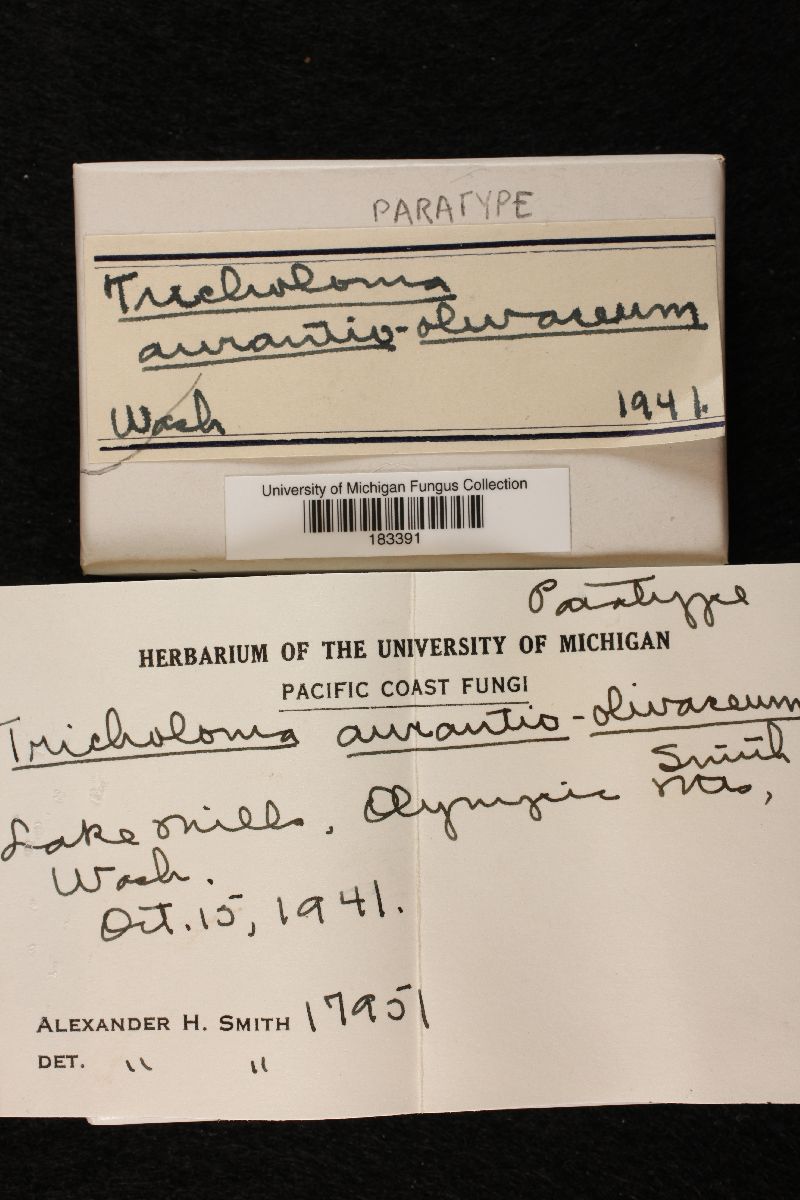 PARATYPE
Tricholoma
aurantio-olivaceum
Wash 1941.
University of Michigan Fungus Collection
183391
Paratype
HERBARIUM OF THE UNIVERSITY OF MICHIGAN
PACIFIC COAST FUNGI
Tricholoma aurantio-olivaceum
Smith
Lake Mills, Olympic Mts,
Wash.
Oct. 15, 1941.
ALEXANDER H. SMITH 17951
DET. " "